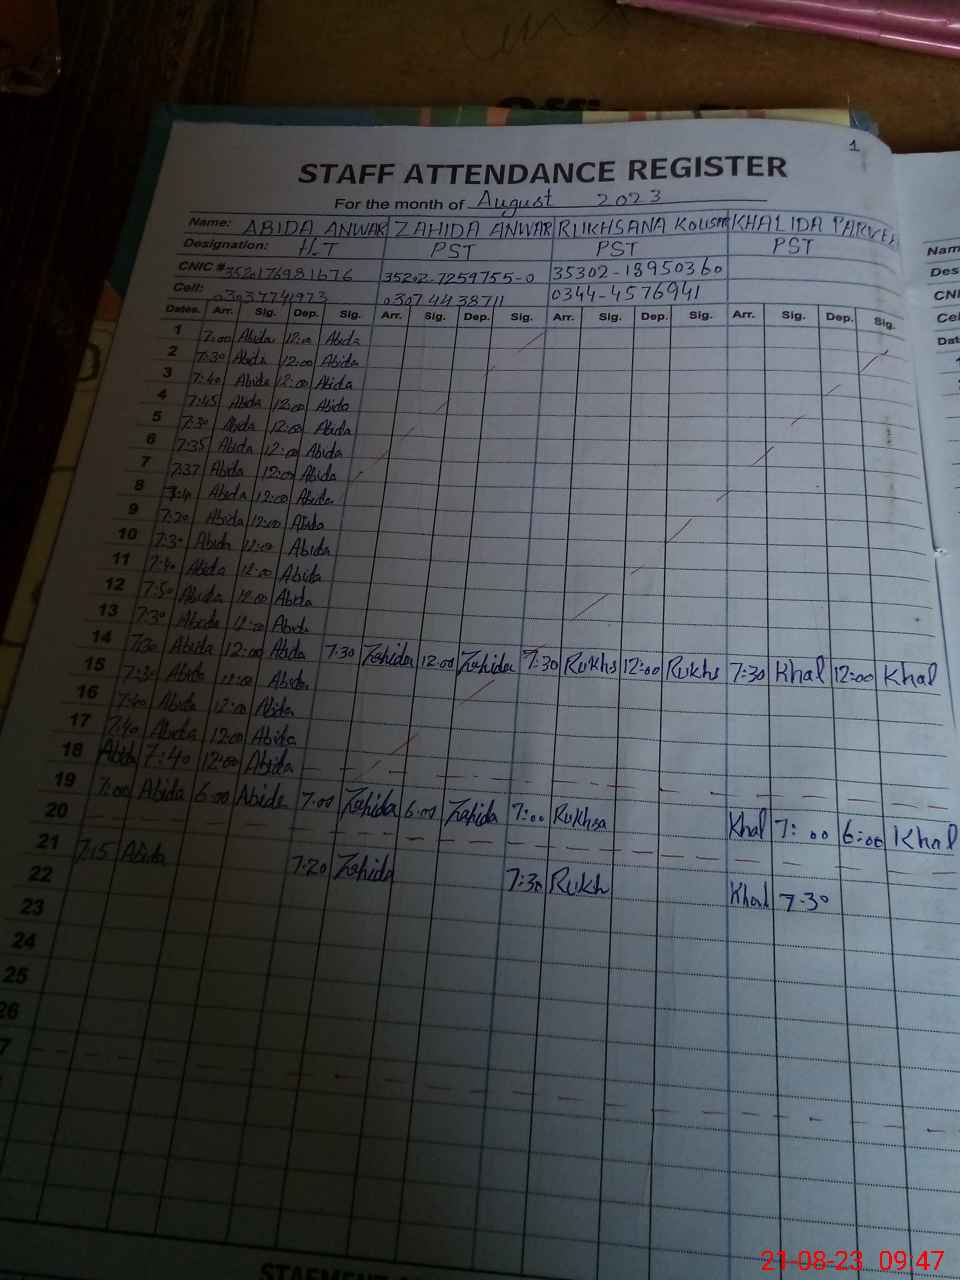 1
STAFF ATTENDANCE REGISTER
For the month of August 2023
Name: ABIDA ANWAR ZAHIDA ANWAR RUKHSANA KHALIDA
Designation: H.T PST PST PST
CNIC # 35202-7259755-0 35302-18950360
Cell: 03037741973 03074438711 0344-4576941
Dates. Arr. Sig. Dep. Sig. Arr. Sig. Dep. Sig. Arr. Sig. Dep. Sig. Arr. Sig. Dep. Sig.
1 7:00 Abida 12:00 Abida
2 7:30 Abida 12:00 Abida
3 7:40 Abida 12:00 Abida
4 7:45 Abida 12:00 Abida
5 7:30 Abida 12:00 Abida
6 7:35 Abida 12:00 Abida
7 7:37 Abida 12:00 Abida
8 Abida 12:00 Abida
9 7:20 Abida 12:00 Abida
10 7:30 Abida 12:00 Abida
11 7:40 Abida 12:00 Abida
12 7:50 Abida 12:00 Abida
13 7:30 Abida 12:00 Abida
14 7:30 Abida 12:00 Abida 7:30 Zahida 12:00 Zahida 7:30 Rukhs 12:00 Rukhs 7:30 Khal 12:00 Khal
15 7:30 Abida 12:00 Abida
16 7:40 Abida 12:00 Abida
17 7:40 Abida 12:00 Abida
18 Abida 7:40 12:00 Abida
19 7:00 Abida 6:00 Abida 7:00 Zahida 6:00 Zahida 7:00 Rukhsa Khal 7:00 6:00 Khal
20
21 7:15 Abida 7:20 Zahida 7:30 Rukh Khal 7:30
22
23
24
25
26
7
Nam
Des
CNI
Cel
Dat
21-08-23 09:47